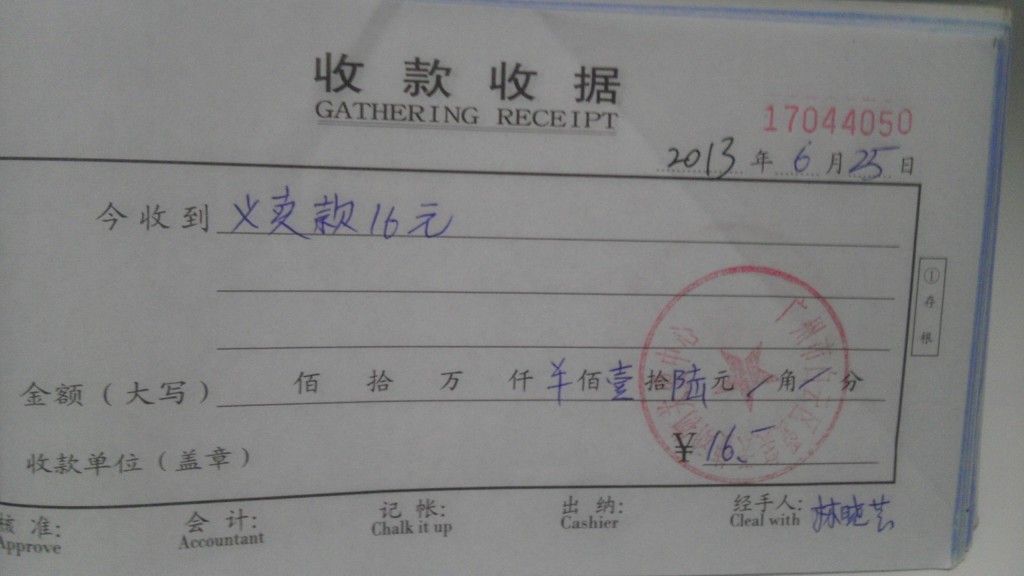 收款收据
GATHERING RECEIPT
17044050
2013年6月25日
今收到 义卖款16元
①存根
金额(大写) 佰 拾 万 仟 羊佰壹拾陆元/角/分
收款单位(盖章) ¥16.-
核准: 会计: 记帐: 出纳: 经手人: 林晓芸
Approve Accountant Chalk it up Cashier Cleal with
广州市
中心